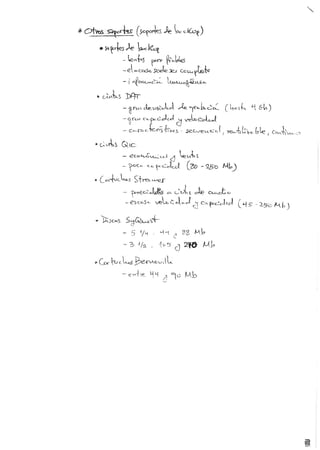 * Otros soportes (soportes de backup)
• soportes de backup
- lentos pero fiables
- el acceso puede ser complejo
- información homogénea
• cintas DAT
- gran densidad de grabación (hasta 4 Gb)
- gran capacidad y velocidad
- características: secuencial, reutilizable,
• cintas QIC
- económicas y lentas
- poca capacidad (20 - 250 Mb)
• Cartuchos Streamer
- parecidas a cintas de audio
- escasa velocidad y capacidad (45 - 250 Mb)
• Discos SyQuest
- 5 1/4 44 y 88 Mb
- 3 1/2 105 y 270 Mb
• Cartuchos Bernouilli
- entre 44 y 90 Mb